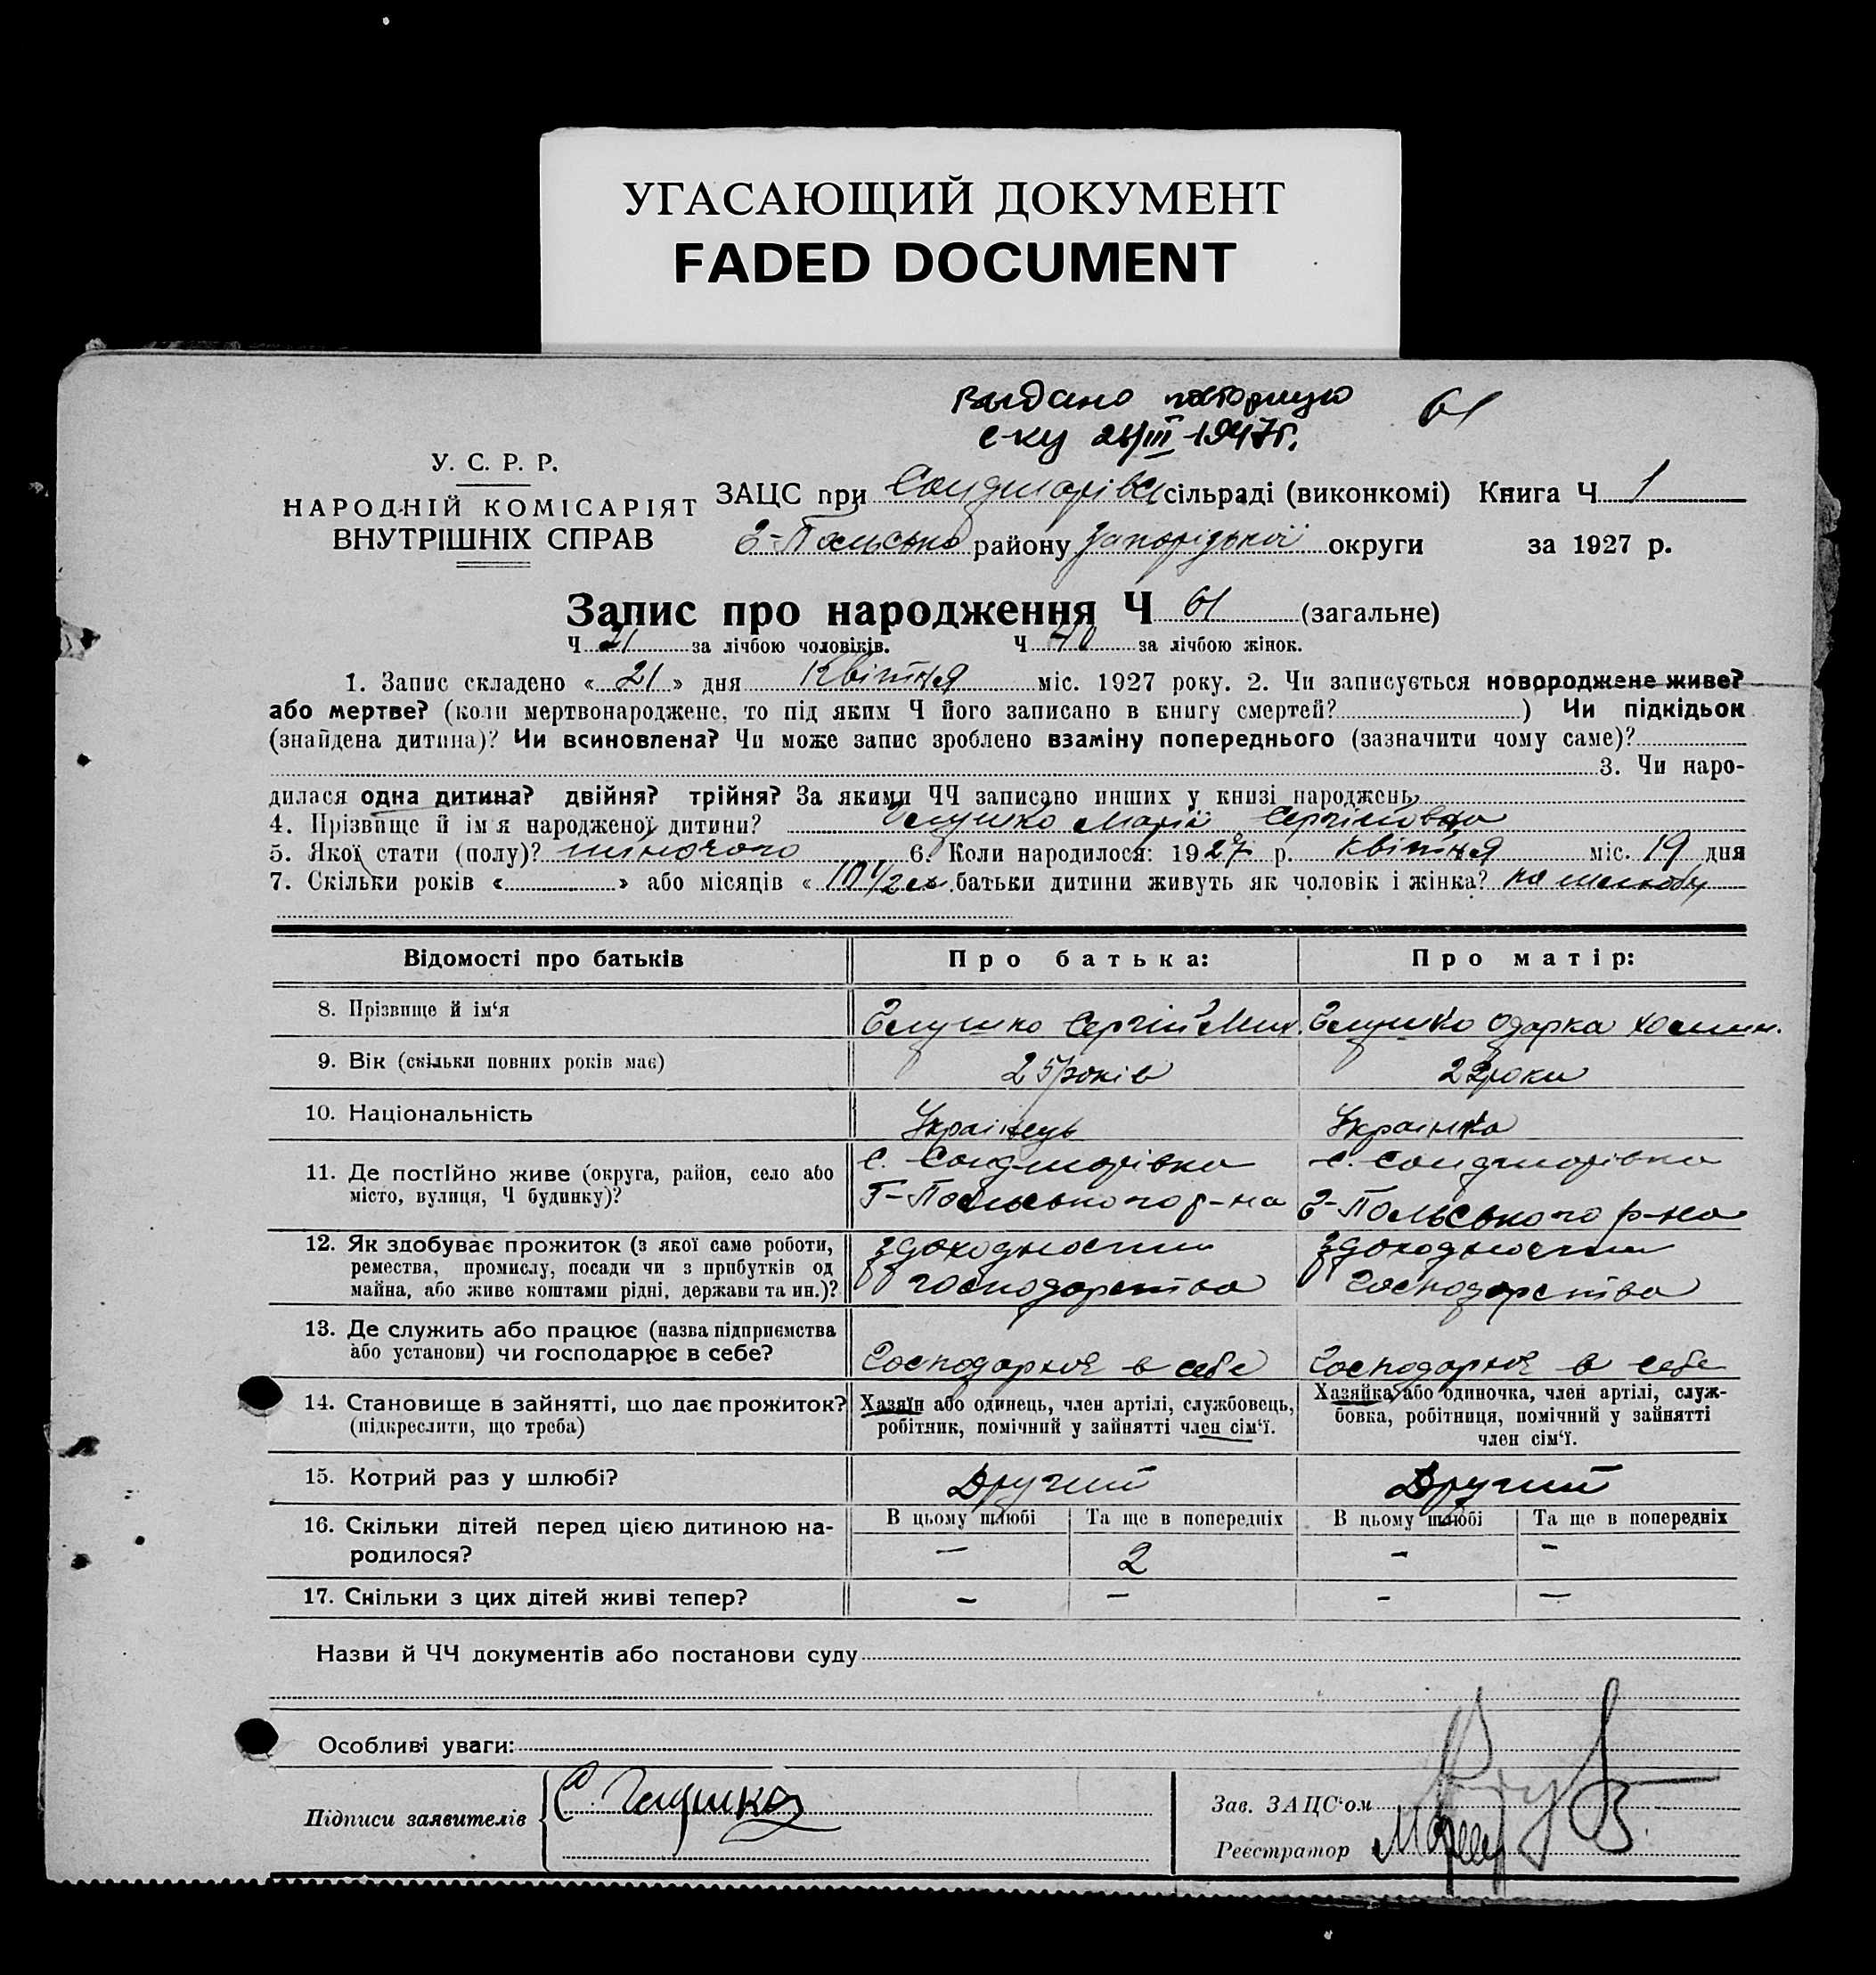 УГАСАЮЩИЙ ДОКУМЕНТ
FADED DOCUMENT
Выдано повторную
с-ку 26/III-1947г.
61
У. С. Р. Р.
НАРОДНІЙ КОМІСАРІЯТ
ВНУТРІШНІХ СПРАВ
ЗАЦС при сільраді (виконкомі) Книга Ч 1
Г-Польсько району Запорізької округи за 1927 р.
Запис про народження Ч 61 (загальне)
Ч 21 за лічбою чоловіків. Ч 40 за лічбою жінок.
1. Запис складено « 21 » дня Квітня міс. 1927 року. 2. Чи записується новороджене живе?
або мертве? (коли мертвонароджене, то під яким Ч його записано в книгу смертей? ) Чи підкідьок
(знайдена дитина)? Чи всиновлена? Чи може запис зроблено взаміну попереднього (зазначити чому саме)?
3. Чи наро-
дилася одна дитина? двійня? трійня? За якими ЧЧ записано инших у книзі народжень
4. Прізвище й ім'я народженої дитини? Глушко Марія Сергіївна
5. Якої стати (полу)? жіночого 6. Коли народилося: 1927 р. Квітня міс. 19 дня
7. Скільки років « » або місяців « 10 1/2 батьки дитини живуть як чоловік і жінка?
Відомості про батьків
Про батька:
Про матір:
8. Прізвище й ім‘я
Глушко Сергій Мих.
Глушко Одарка Хомин.
9. Вік (скільки повних років має)
25 років
22 роки
10. Національність
Українець
Украінка
11. Де постійно живе (округа, район, село або
місто, вулиця, Ч будинку)?
Г-Польського р-на
Г-Польського р-на
12. Як здобуває прожиток (з якої саме роботи,
ремества, промислу, посади чи з прибутків од
майна, або живе коштами рідні, держави та ин.)?
здоходности
господарства
здоходности
господарства
13. Де служить або працює (назва підприємства
або установи) чи господарює в себе?
Господарює в себе
Господарює в себе
14. Становище в зайнятті, що дає прожиток?
(підкреслити, що треба)
Хазяїн або одинець, член артілі, службовець,
робітник, помічний у зайнятті член сім‘ї.
Хазяйка або одиночка, член артілі, служ-
бовка, робітниця, помічний у зайнятті
член сім‘ї.
15. Котрий раз у шлюбі?
Другий
Другий
16. Скільки дітей перед цією дитиною на-
родилося?
В цьому шлюбі
Та ще в попередніх
В цьому шлюбі
Та ще в попередніх
— 2 - -
17. Скільки з цих дітей живі тепер?
- - - —
Назви й ЧЧ документів або постанови суду
Особливі уваги:
Підписи заявителів
С. Глушко
Зав. ЗАЦС‘ом
Реєстратор